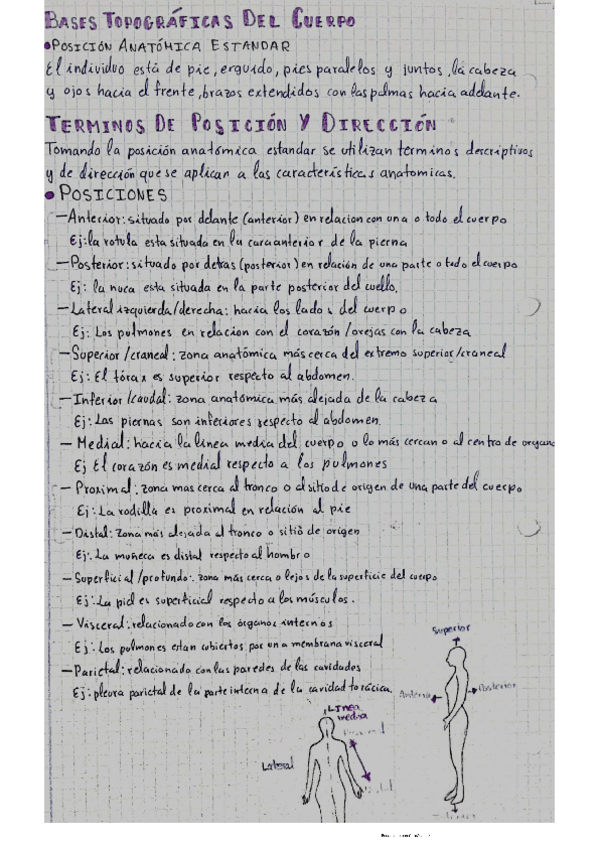 BASES TOPOGRÁFICAS DEL CUERPO
•POSICIÓN ANATÓMICA ESTANDAR
El individuo está de pie, erguido, pies paralelos y juntos, la cabeza
y ojos hacia el frente, brazos extendidos con las palmas hacia adelante.
TERMINOS DE POSICIÓN Y DIRECCIÓN
Tomando la posición anatómica estandar se utilizan terminos descriptivos
y de dirección que se aplican a las características anatomicas.
• POSICIONES
—Anterior: situado por delante (anterior) en relacion con una o todo el cuerpo
Ej: la rotula esta situada en la cara anterior de la pierna
—Posterior: situado por detras (posterior) en relación de una parte o todo el cuerpo
Ej: la nuca esta situada en la parte posterior del cuello.
—Lateral izquierda/derecha: hacia los lados del cuerpo
Ej: Los pulmones en relacion con el corazón/orejas con la cabeza
—Superior/craneal: zona anatómica más cerca del extremo superior/craneal
Ej: El tórax es superior respecto al abdomen.
—Inferior/caudal: zona anatómica más alejada de la cabeza
Ej: Las piernas son inferiores respecto al abdomen.
— Medial: hacia la linea media del cuerpo o lo más cercano al centro de organo
Ej El corazón es medial respecto a los pulmones
— Proximal: zona mas cerca al tronco o al sitio de origen de una parte del cuerpo
Ej: La rodilla es proximal en relación al pie
— Distal: zona más alejada al tronco o sitio de origen
Ej: La muñeca es distal respecto al hombro
— Superficial/profundo: zona más cerca o lejos de la superficie del cuerpo
Ej: La piel es superficial respecto a los músculos.
— Visceral: relacionado con los órganos internos
Ej: Los pulmones estan cubiertos por una membrana visceral
—Parietal: relacionado con las paredes de las cavidades
Ej: pleura parietal de la parte interna de la cavidad torácica.
Superior
Anterior
Posterior
Linea
media
Lateral